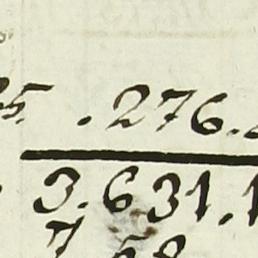 5. .276.
3.631.1
7 58